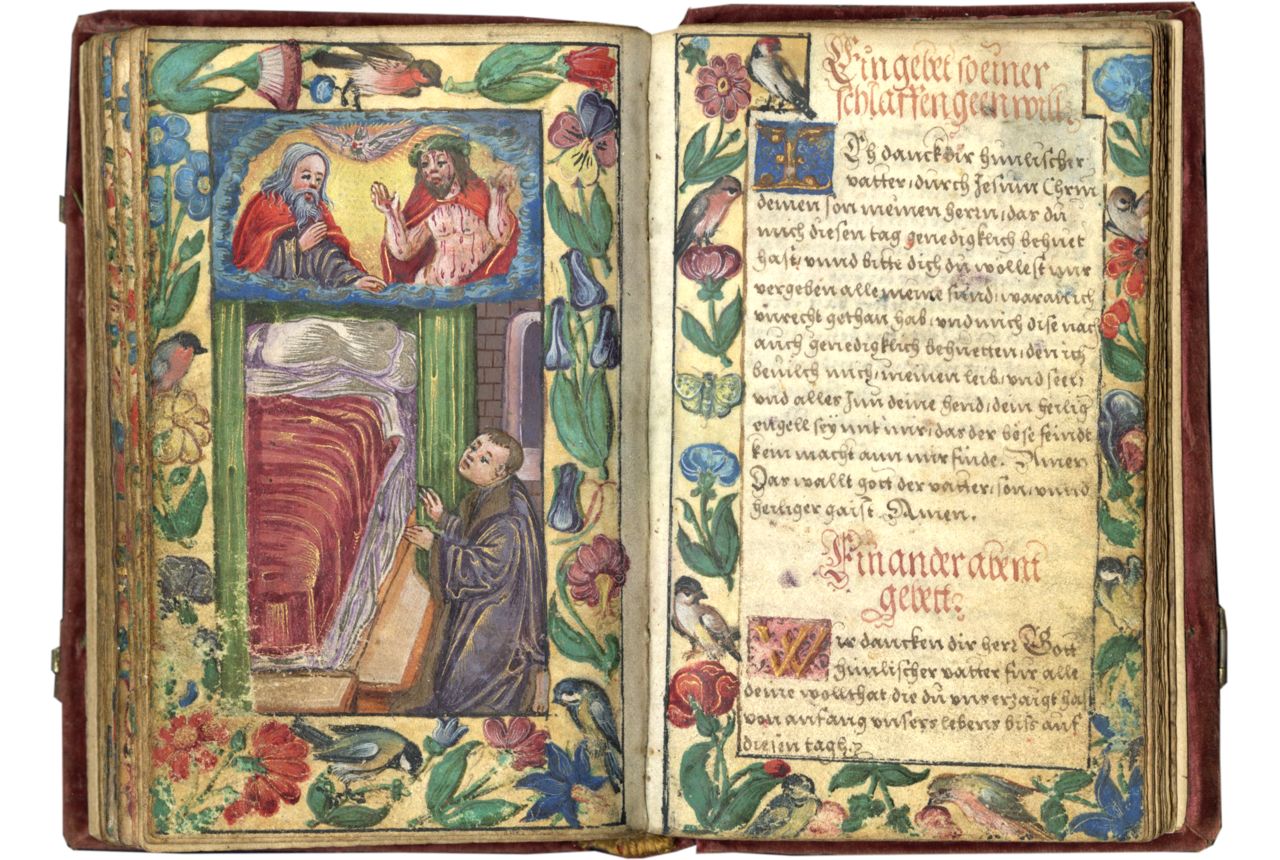 Ein gebet so einer
schlaffen geen will.
Ich danck dir himlischer
vatter, durch Jesum Chrm
deinen son meinen herrn, das du
mich diesen tag genedigklich behuet
hast, vnnd bitte dich du wollest mir
vergeben alle meine sünd, waran ich
vnrecht gethan hab, vnd mich dise nach
auch genedigklich behuetten, den ich
beuilch mich, meinen leib, vnd seel,
vnd alles Jnn deine hend, dein heilig
engell sey mit mir, das der böse feindt
kein macht ann mir finde. Amen
Das wallt gott der vatter, son, vnnd
heiliger gaist. Amen.
Ein ander abent
gebett.
Wir dancken dir herr Gott
himlischer vatter für alle
deine wollthat die du vns erzaigt hast
von anfang vnsers lebens biss auf
diesen tagh.